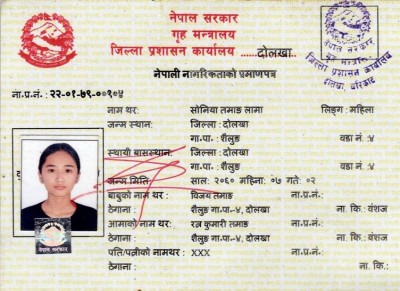 नेपाल सरकार
गृह मन्त्रालय
जिल्ला प्रशासन कार्यालय ......दोलखा
नेपाली नागरिकताको प्रमाणपत्र
नेपाल सरकार
गृह मन्त्रालय
जिल्ला प्रशासन कार्यालय
दोलखा, चरिकोट
ना.प्र.नं.: २२-०१-७९-००९०४
नाम थर: सोनिया तमाङ लामा लिङ्ग: महिला
जन्म स्थान: जिल्ला: दोलखा
गा.पा.: शैलुङ वडा नं :४
स्थायी बासस्थान: जिल्ला: दोलखा
गा.पा.: शैलुङ वडा नं :४
जन्म मिति: साल: २०६० महिना: ०७ गते: ०२
बाबुको नाम थर: विजय तमाङ ना.प्र.नं:
ठेगाना: शैलुङ गा.पा.-४, दोलखा ना. कि.: वंशज
आमाको नाम थर: रत्न कुमारी तमाङ ना.प्र.नं:
ठेगाना: शैलुङ गा.पा.-४, दोलखा ना. कि.: वंशज
पति/पत्नीको नामथर: XXX ना.प्र.नं:
ठेगाना: ना. कि.:
नेपाल सरकार